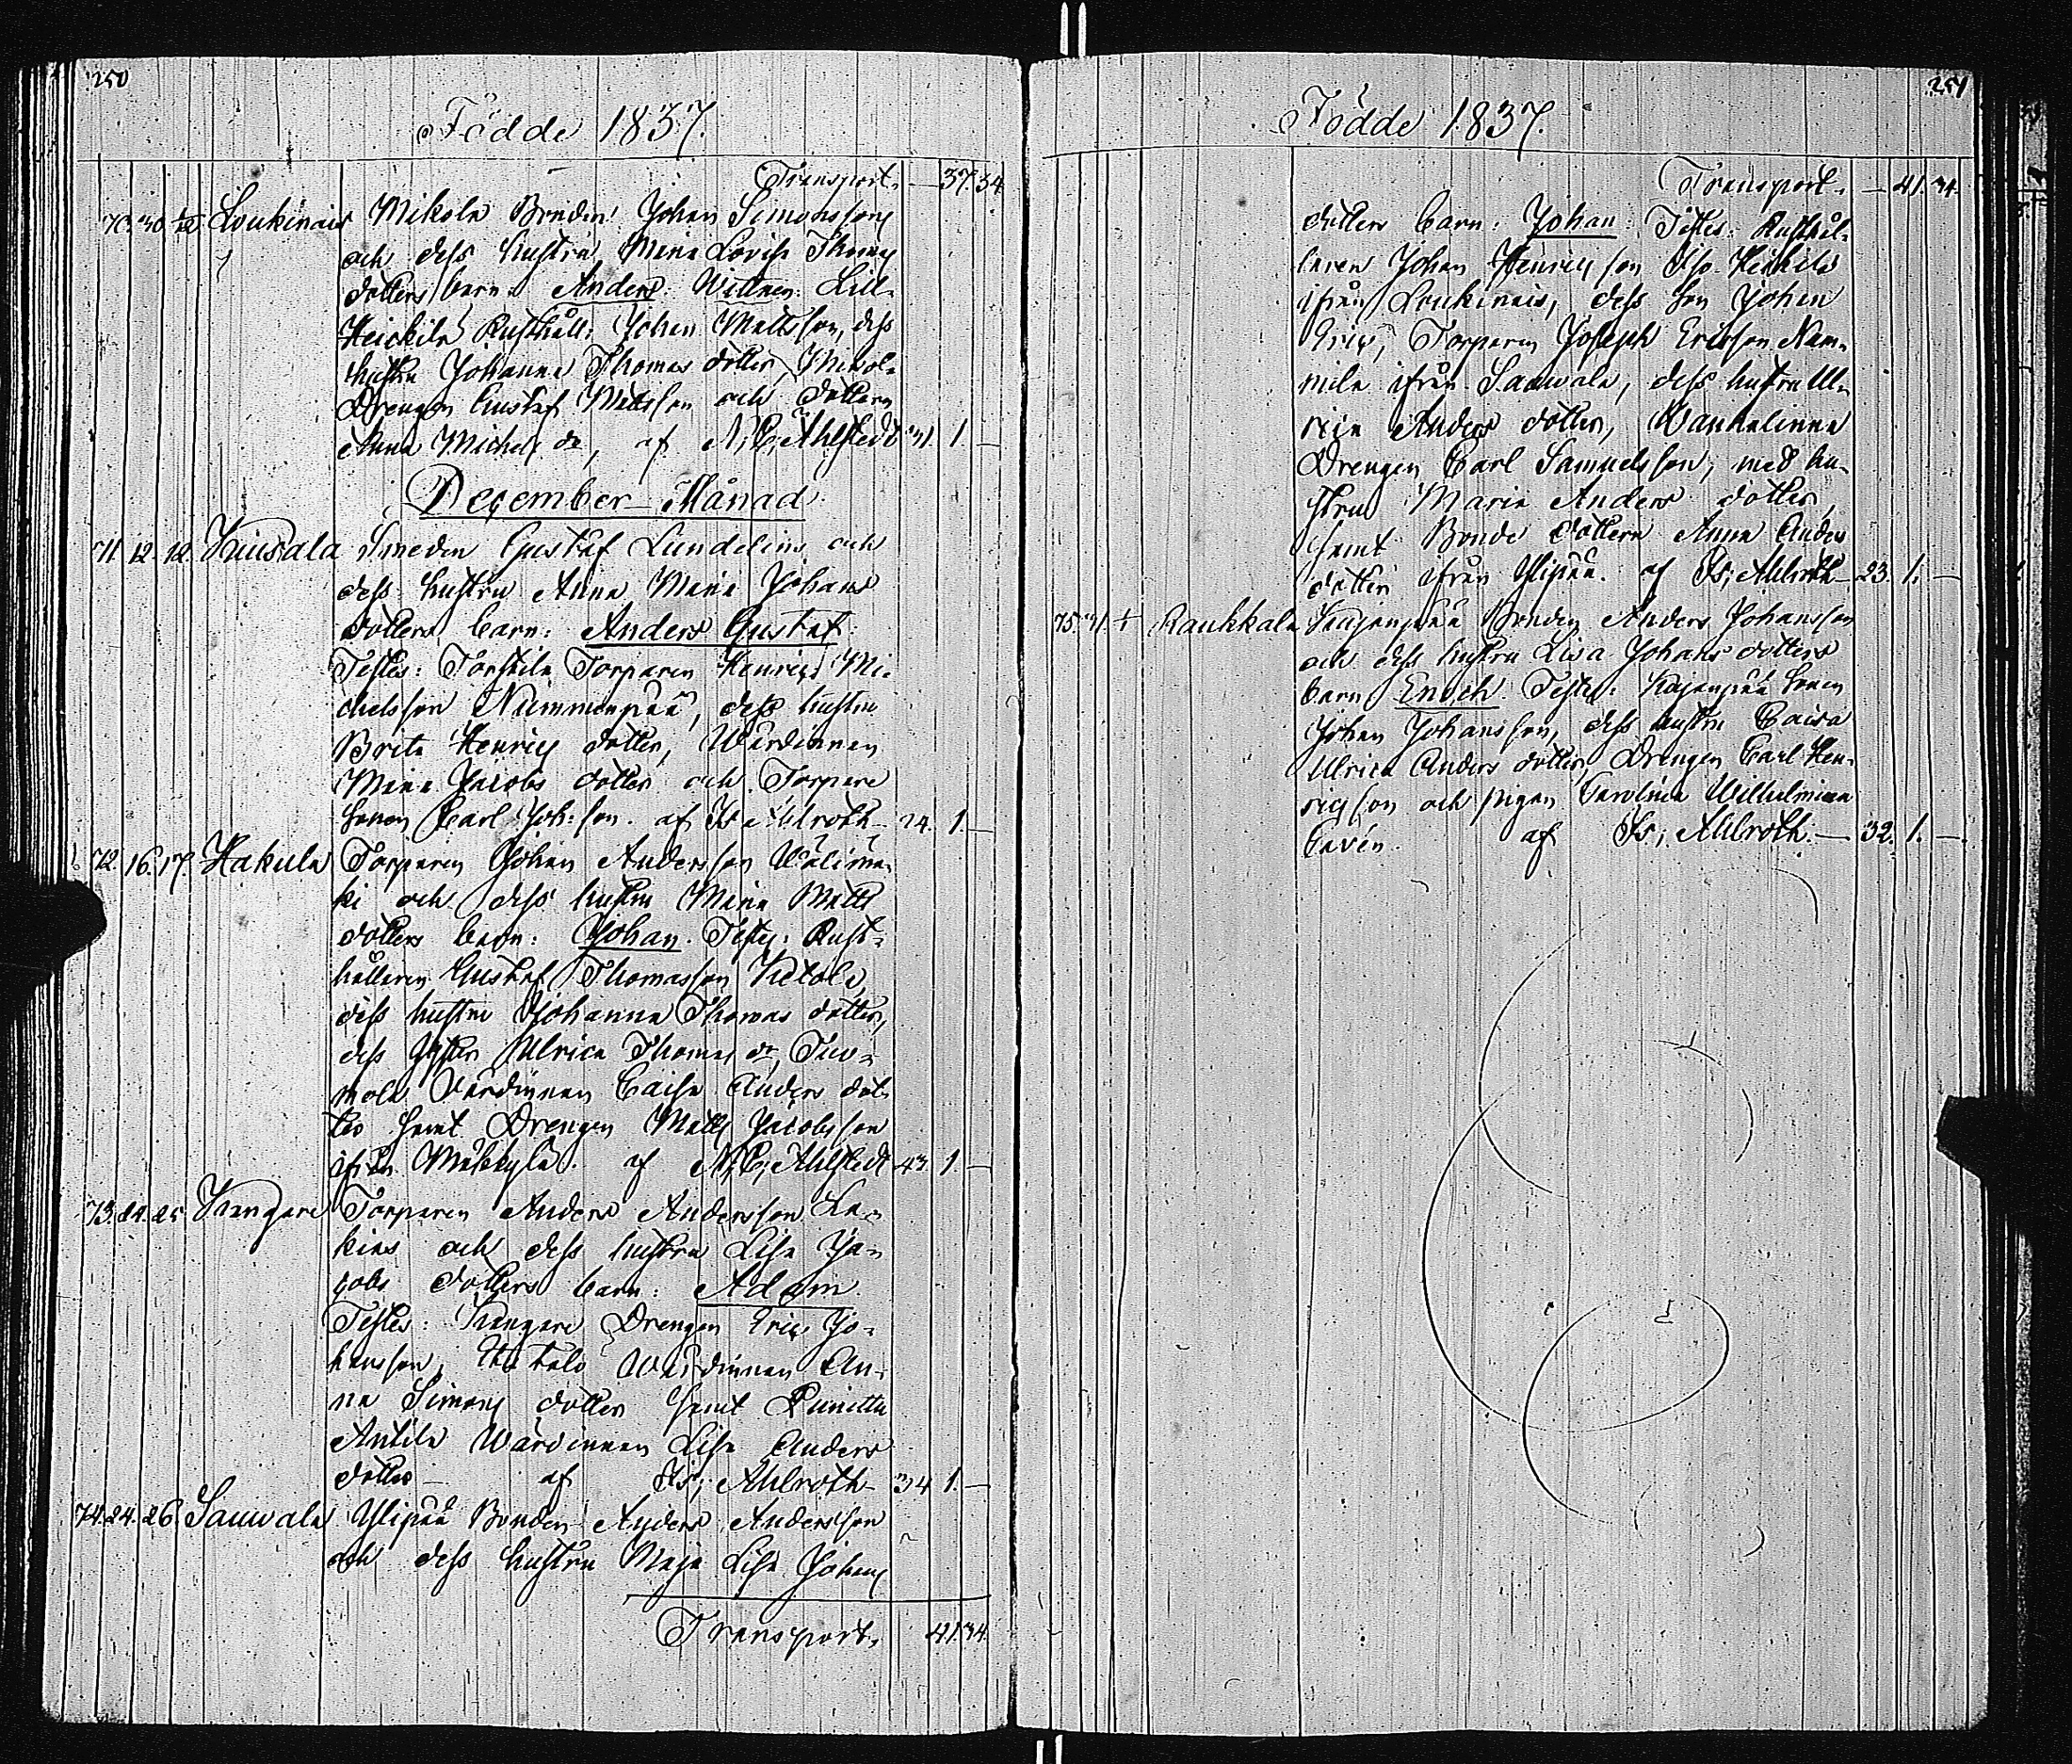 250
Födde 1837.
Transport. — 37. 34
70. 30 1/12 Loukinais Mikola Bonden Johan Simonsson
och dess hustru Maria Lovisa Thomas
dotters barn: Anders. Wittnen: Lill-
Heickilä Rusthåll: Johan Mattsson, dess
hustru Johanna Thomas dotter, Mikola
Drengen Gustaf Mattsson och dottern
Anna Michels dr, af N. C. Ahlstedt 31. 1. —
December Månad
71. 12. 12. Kiusala Smeden Gustaf Lundelius och
dess hustru Anna Maria Johans
dotters barn: Anders Gustaf.
Testes: Torskila Torparen Henric Mi-
chelsson Nummenpää, dess hustru
Brita Henrics dotter, Wärdinnan
Maria Jacobs dotter och Torpare
sonen Carl Joh: son. af Is: Ahlroth 24. 1. —
72. 16. 17. Hakula Torparen Johan Andersson Wälimä-
ki och dess hustru Maria Matts
dotters barn: Johan. Testes: Rust-
hållaren Gustaf Thomasson Ketola,
dess hustru Johanna Thomas dotter,
dess syster Ulrica Thomas dr, Tuo-
mola Värdinnan Caisa Anders dot-
ter samt Drengen Matts Jacobsson
ifrån Mäkkylä. af N. C. Ahlstedt 43. 1. —
73. 24. 25. Kangare Torparen Anders Andersson La-
kias och dess hustru Lisa Ja-
cobs dotters barn: Adam.
Testes: Kangare Drengen Eric Jo-
hansson, Uti talo Wärdinnan An-
na Simons dotter samt Punittu
Antila Wärdinnan Lisa Anders
dotter — af Is; Ahlroth 34 1. —
74. 24. 26. Sauvala Ylipää Bonden Anders Andersson
och dess hustru Maja Lisa Johans
Transport. 41. 34.
251
Födde 1837.
Transport. — 41. 34.
dotters barn: Johan. Testes: Rusthål-
laren Johan Henricsson Iso-Heikilä
ifrån Loukinais, dess son Johan
Eric, Torparen Joseph Ericsson Nam-
mila ifrån Sauwala, dess hustru Ul-
rica Anders dotter, Wanhalinna
Drengen Carl Samuelsson, med hu-
stru Maria Anders dotter,
samt Bonde dottern Anna Anders
dotter ifrån Ylipää. af Is; Ahlroth 23. 1. —
75. 31. 1/1 Raukkala Kajanpää Bonden Anders Johansson
och dess hustru Lisa Johans dotters
barn Enoch. Testes: Kajanpää Sonen
Johan Johansson, dess hustru Caisa
Ulrica Anders dotter, Drengen Carl Hen-
ricsson och pigan Carolina Wilhelmina
Cavén. af Is; Ahlroth. — 32. 1. —